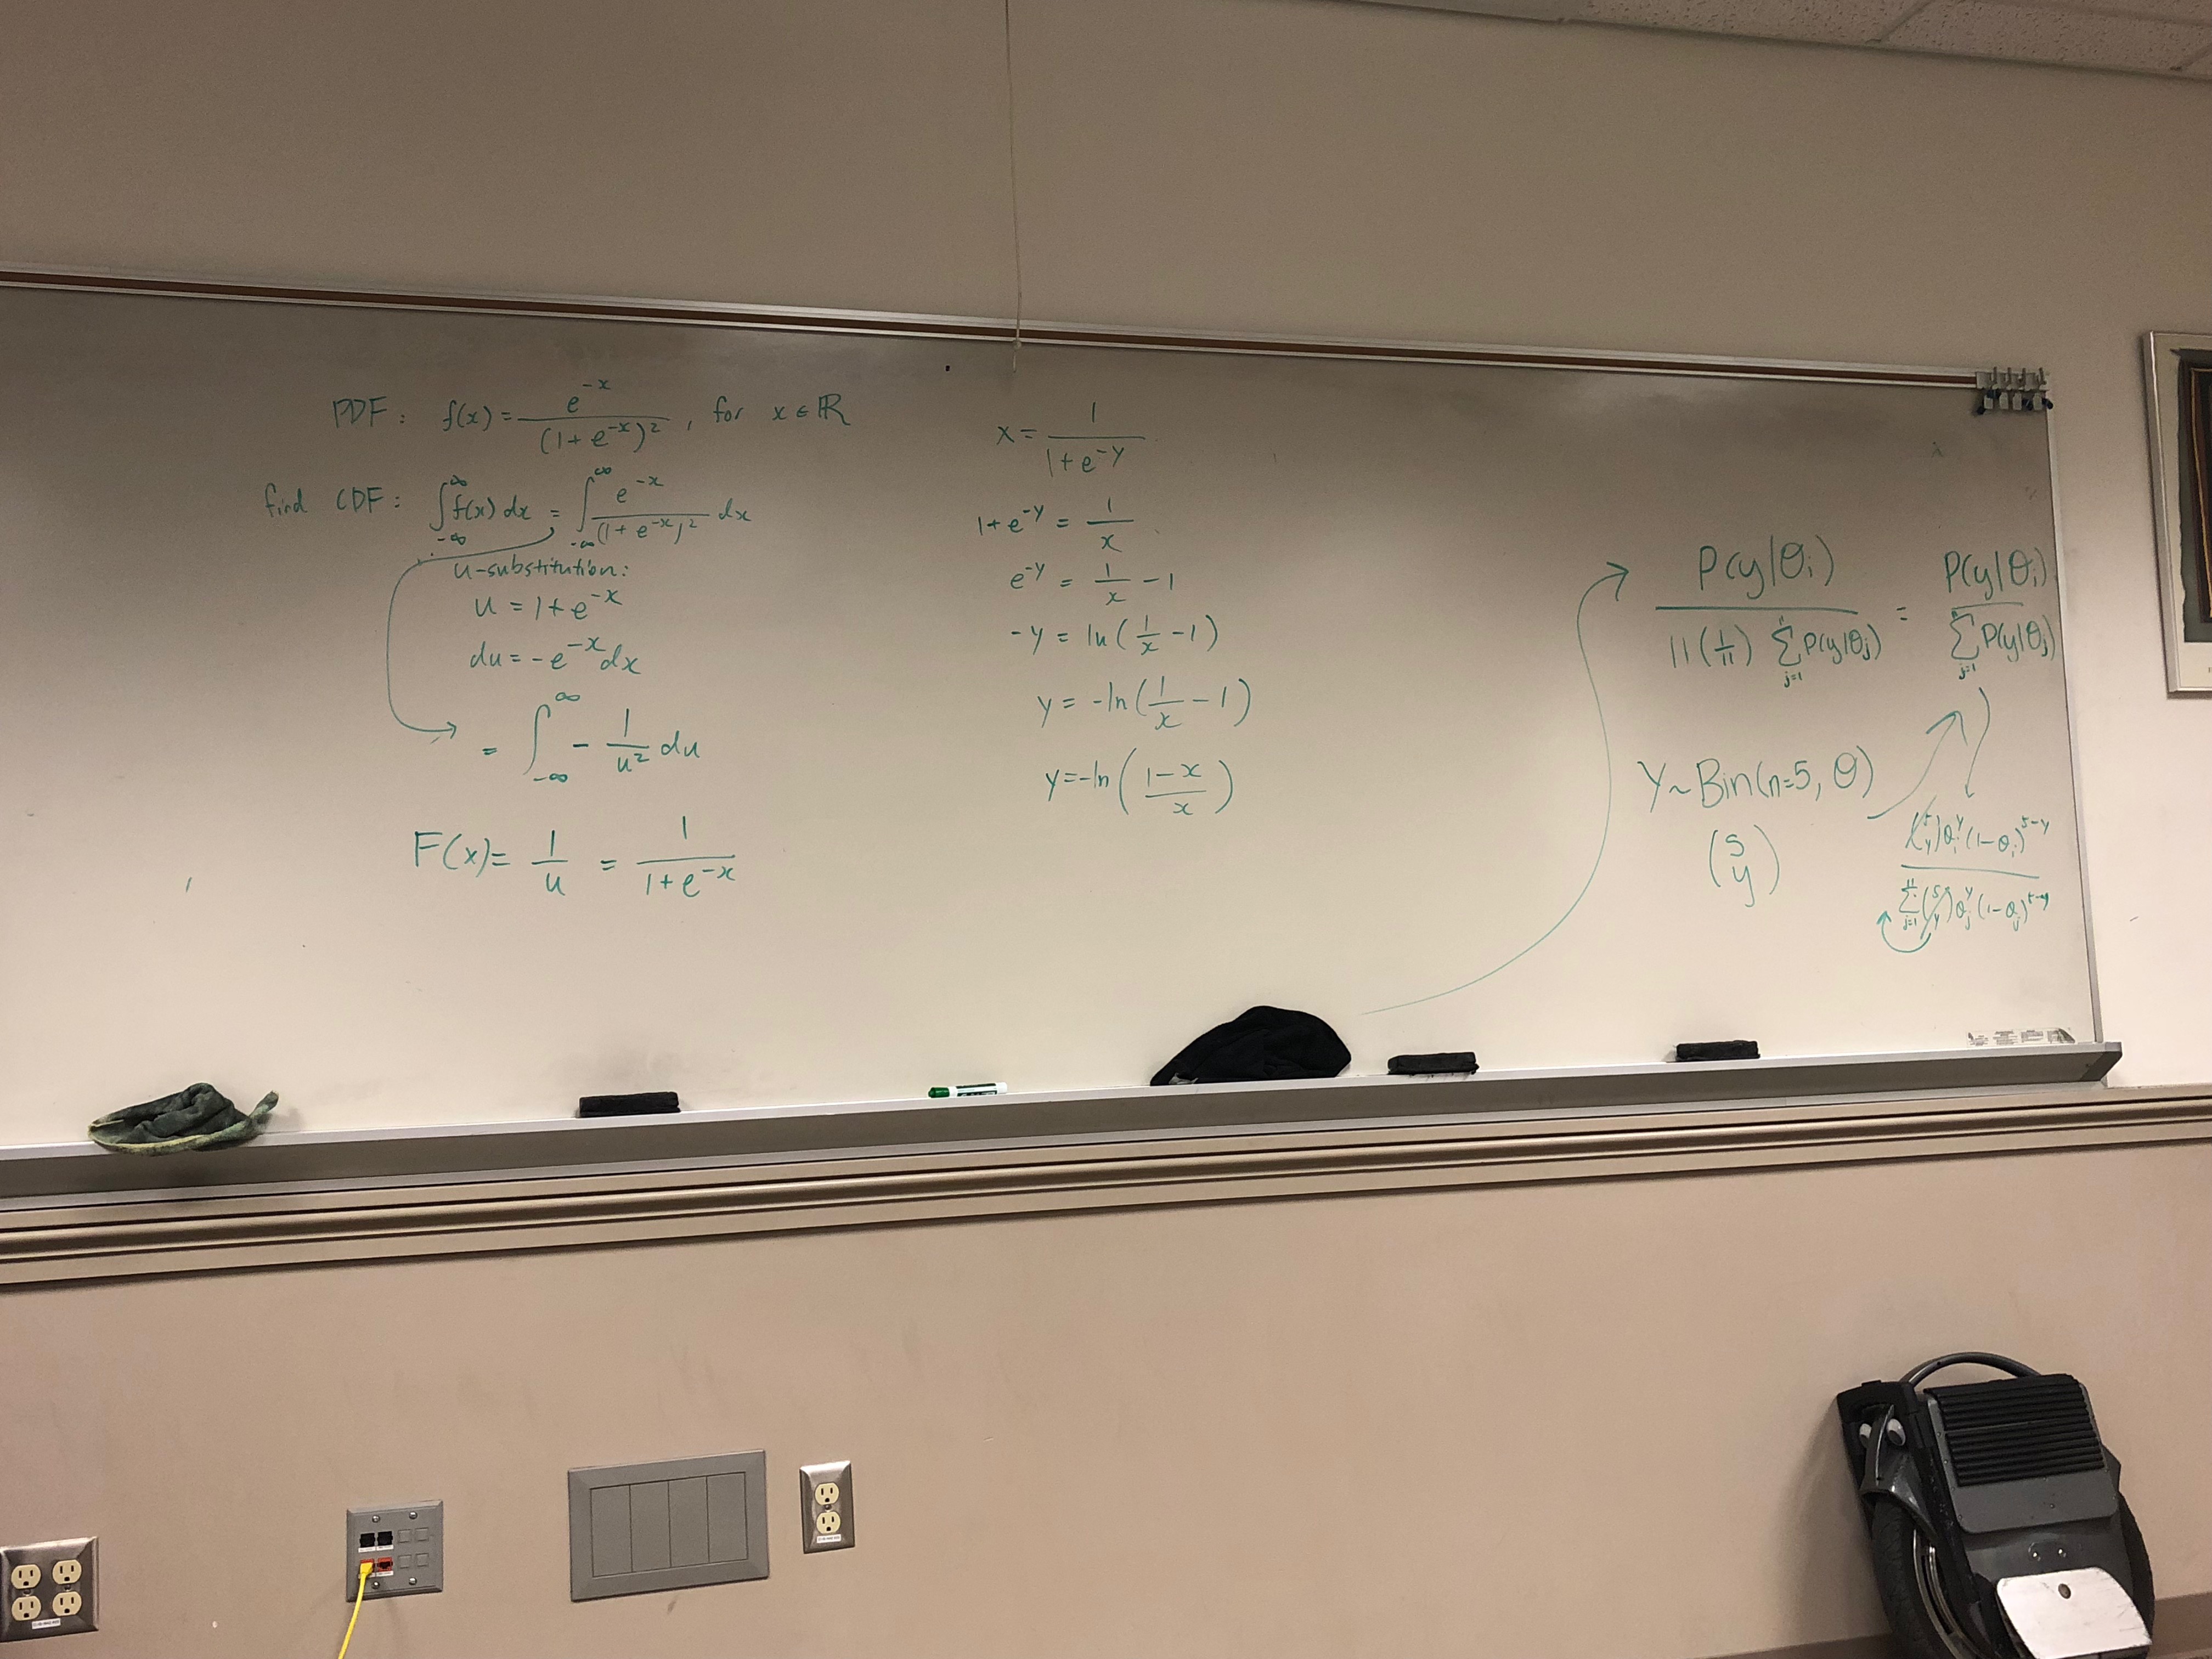 PDF: f(x) = e^{-x} / (1 + e^{-x})^2 , for x ∈ ℝ
find CDF: ∫_{-∞}^{∞} f(x) dx = ∫_{-∞}^{∞} e^{-x} / (1 + e^{-x})^2 dx
u-substitution:
u = 1 + e^{-x}
du = -e^{-x} dx
= ∫_{-∞}^{∞} - 1/u^2 du
F(x) = 1/u = 1 / (1 + e^{-x})
x = 1 / (1 + e^{-y})
1 + e^{-y} = 1/x
e^{-y} = 1/x - 1
-y = ln(1/x - 1)
y = -ln(1/x - 1)
y = -ln((1-x)/x)
P(y|θ_i) / (11(1/11) Σ_{j=1}^{11} P(y|θ_j)) = P(y|θ_i) / Σ_{j=1}^{11} P(y|θ_j)
Y ~ Bin(n=5, θ)
(5 y)
(5 y) θ_i^y (1-θ_i)^{5-y} / Σ_{j=1}^{11} (5 y) θ_j^y (1-θ_j)^{5-y}